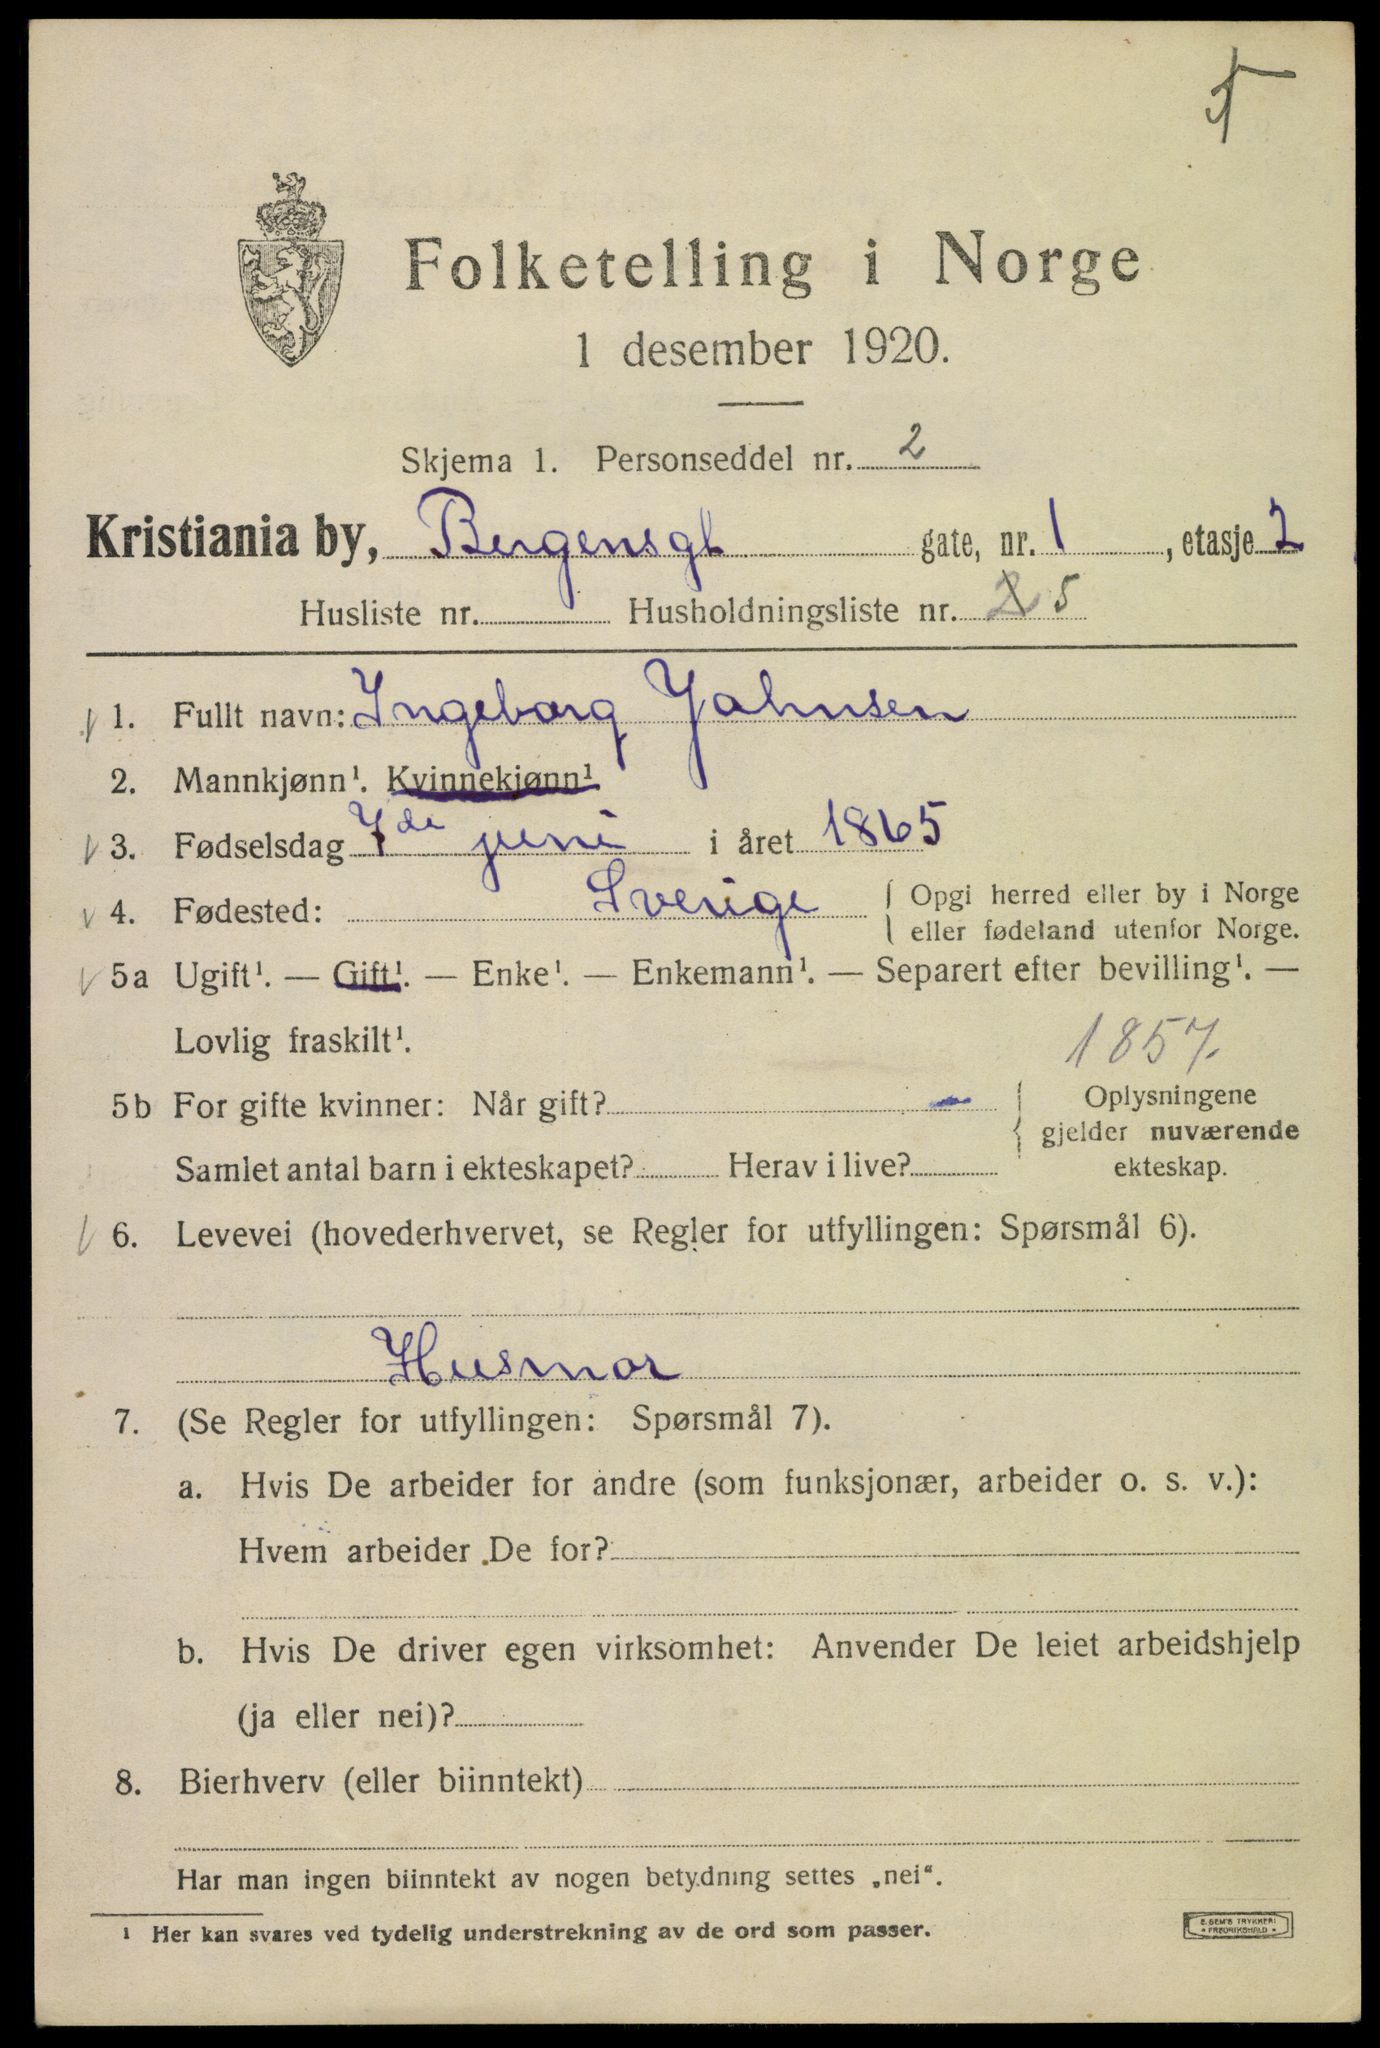 Folketelling i Norge
1 desember 1920.
Skjema 1. Personseddel nr. 2
Kristiania by, Bergensgt gate, nr. 1, etasje 2
Husliste nr. Husholdningsliste nr. 2 5
1. Fullt navn: Ingeborg Johnsen
2. Mannkjønn¹. Kvinnekjønn¹
3. Fødselsdag 7de juni i året 1865
4. Fødested: Sverige { Opgi herred eller by i Norge
eller fødeland utenfor Norge.
5a Ugift¹. — Gift¹. — Enke¹. — Enkemann¹. — Separert efter bevilling¹. —
Lovlig fraskilt¹.
1857.
5b For gifte kvinner: Når gift? — { Oplysningene
gjelder nuværende
Samlet antal barn i ekteskapet? Herav i live? ekteskap.
6. Levevei (hovederhvervet, se Regler for utfyllingen: Spørsmål 6).
Husmor
7. (Se Regler for utfyllingen: Spørsmål 7).
a. Hvis De arbeider for andre (som funksjonær, arbeider o. s. v.):
Hvem arbeider De for?
b. Hvis De driver egen virksomhet: Anvender De leiet arbeidshjelp
(ja eller nei)?
8. Bierhverv (eller biinntekt)
Har man ingen biinntekt av nogen betydning settes „nei“.
¹ Her kan svares ved tydelig understrekning av de ord som passer.
E. SEM'S TRYKKERI
• FREDRIKSHALD •